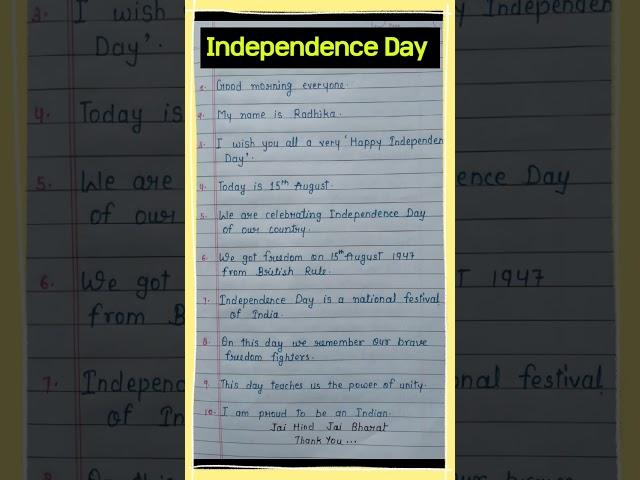 Independence Day
1. Good morning everyone.
2. My name is Radhika.
3. I wish you all a very 'Happy Independen
Day'.
4. Today is 15th August.
5. We are celebrating Independence Day
of our country.
6. We got freedom on 15th August 1947
from British Rule.
7. Independence Day is a national festival
of India.
8. On this day we remember our brave
freedom fighters.
9. This day teaches us the power of unity.
10. I am proud to be an Indian.
Jai Hind Jai Bharat
Thank You ...